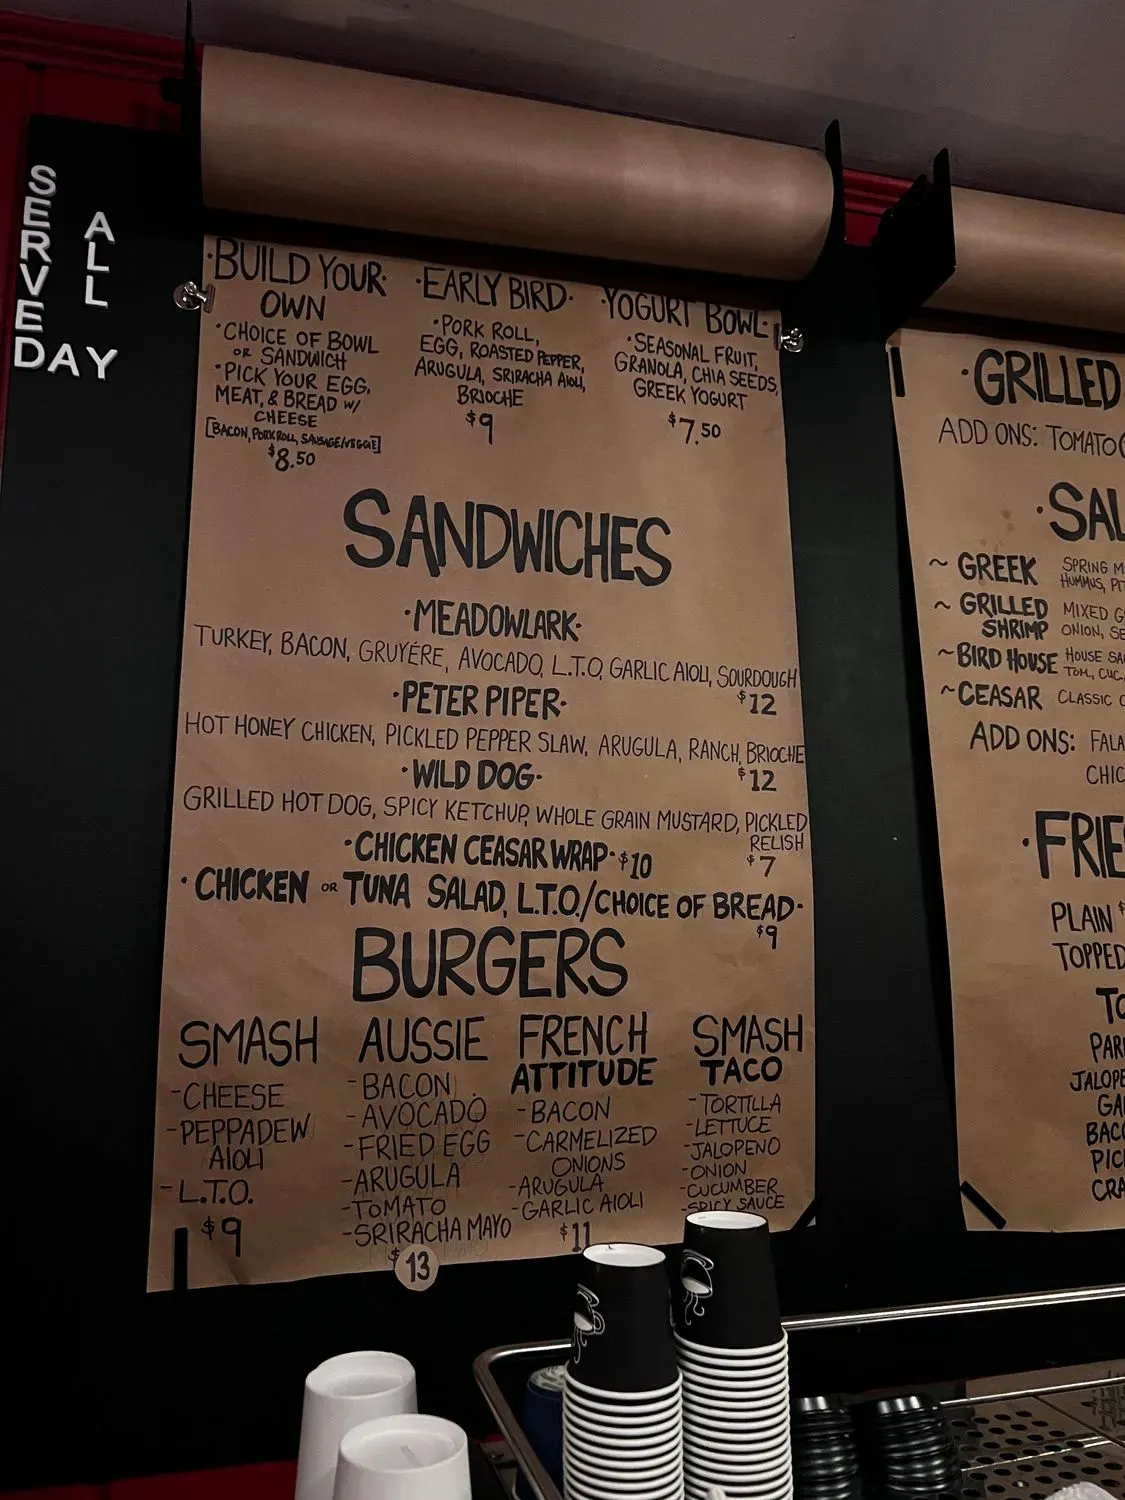 SERVED
ALL
DAY
·BUILD YOUR·
OWN
·CHOICE OF BOWL
OR SANDWICH
·PICK YOUR EGG,
MEAT, & BREAD W/
CHEESE
[BACON, PORK ROLL, SAUSAGE/VEGGIE]
$8.50
·EARLY BIRD·
·PORK ROLL,
EGG, ROASTED PEPPER,
ARUGULA, SRIRACHA AIOLI,
BRIOCHE
$9
·YOGURT BOWL·
·SEASONAL FRUIT,
GRANOLA, CHIA SEEDS,
GREEK YOGURT
$7.50
SANDWICHES
·MEADOWLARK·
TURKEY, BACON, GRUYÉRE, AVOCADO, L.T.O, GARLIC AIOLI, SOURDOUGH
$12
·PETER PIPER·
HOT HONEY CHICKEN, PICKLED PEPPER SLAW, ARUGULA, RANCH, BRIOCHE
$12
·WILD DOG·
GRILLED HOT DOG, SPICY KETCHUP, WHOLE GRAIN MUSTARD, PICKLED
RELISH
$7
·CHICKEN CEASAR WRAP· $10
·CHICKEN OR TUNA SALAD, L.T.O./CHOICE OF BREAD·
$9
BURGERS
SMASH
-CHEESE
-PEPPADEW
AIOLI
-L.T.O.
$9
AUSSIE
-BACON
-AVOCADO
-FRIED EGG
-ARUGULA
-TOMATO
-SRIRACHA MAYO
$13
FRENCH
ATTITUDE
-BACON
-CARMELIZED
ONIONS
-ARUGULA
-GARLIC AIOLI
$11
SMASH
TACO
-TORTILLA
-LETTUCE
-JALOPENO
-ONION
-CUCUMBER
-SPICY SAUCE
·GRILLED
ADD ONS: TOMATO
·SAL
~ GREEK SPRING M
HUMMUS, PI
~ GRILLED SHRIMP MIXED G
ONION, SE
~BIRD HOUSE HOUSE SA
TOM, CUC,
~CEASAR CLASSIC C
ADD ONS: FALA
CHIC
·FRIE
PLAIN $
TOPPED
TO
PAR
JALOPE
GA
BAC
PIC
CRA